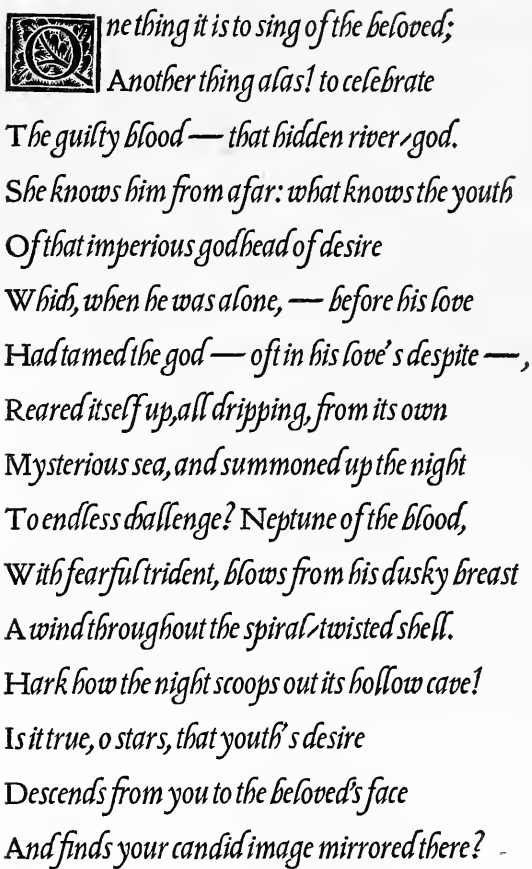 One thing it is to sing of the beloved;
Another thing alas! to celebrate
The guilty blood — that hidden river-god.
She knows him from afar: what knows the youth
Of that imperious godhead of desire
Which, when he was alone, — before his love
Had tamed the god — oft in his love's despite —,
Reared itself up, all dripping, from its own
Mysterious sea, and summoned up the night
To endless challenge? Neptune of the blood,
With fearful trident, blows from his dusky breast
A wind throughout the spiral-twisted shell.
Hark how the night scoops out its hollow cave!
Is it true, o stars, that youth's desire
Descends from you to the beloved's face
And finds your candid image mirrored there?